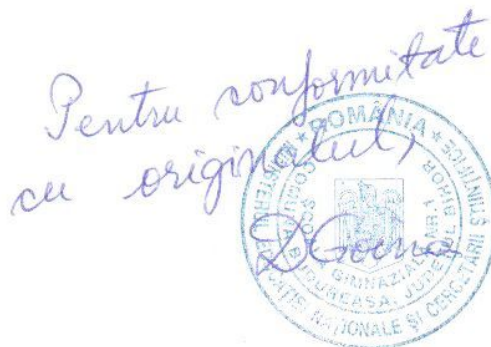 Pentru conformitate
cu originalul,
★ ROMÂNIA ★
MINISTERUL EDUCAȚIEI NAȚIONALE ȘI CERCETĂRII ȘTIINȚIFICE
ȘCOALA GIMNAZIALĂ NR. 1
COMUNA BUDUREASA, JUDEȚUL BIHOR